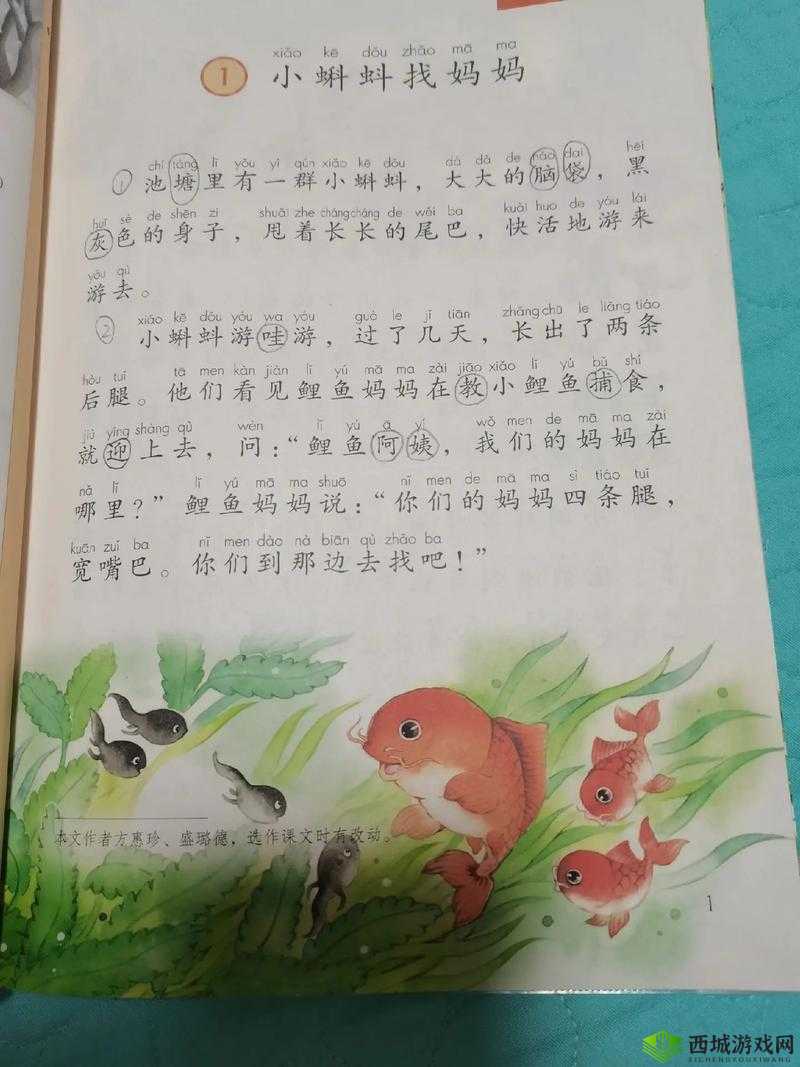 xiǎo kē dǒu zhǎo mā ma
1 小蝌蚪找妈妈
chí táng lǐ yǒu yì qún xiǎo kē dǒu dà dà de nǎo dai hēi
① 池塘里有一群小蝌蚪，大大的脑袋，黑
huī sè de shēn zi shuǎi zhe chángcháng de wěi ba kuài huo de yóu lái
灰色的身子，甩着长长的尾巴，快活地游来
yóu qù
游去。
xiǎo kē dǒu yóu wa yóu guò le jǐ tiān zhǎng chū le liǎng tiáo
② 小蝌蚪游哇游，过了几天，长出了两条
hòu tuǐ tā men kàn jiàn lǐ yú mā ma zài jiāo xiǎo lǐ yú bǔ shí
后腿。他们看见鲤鱼妈妈在教小鲤鱼捕食，
jiù yíng shàng qù wèn lǐ yú ā yí wǒ men de mā ma zài
就迎上去，问：“鲤鱼阿姨，我们的妈妈在
nǎ lǐ lǐ yú mā ma shuō nǐ men de mā ma sì tiáo tuǐ
哪里？”鲤鱼妈妈说：“你们的妈妈四条腿，
kuān zuǐ ba nǐ men dào nà biān qù zhǎo ba
宽嘴巴。你们到那边去找吧！”
本文作者方惠珍、盛璐德，选作课文时有改动。
1
西城游戏网
XICHENGYOUXIWANG